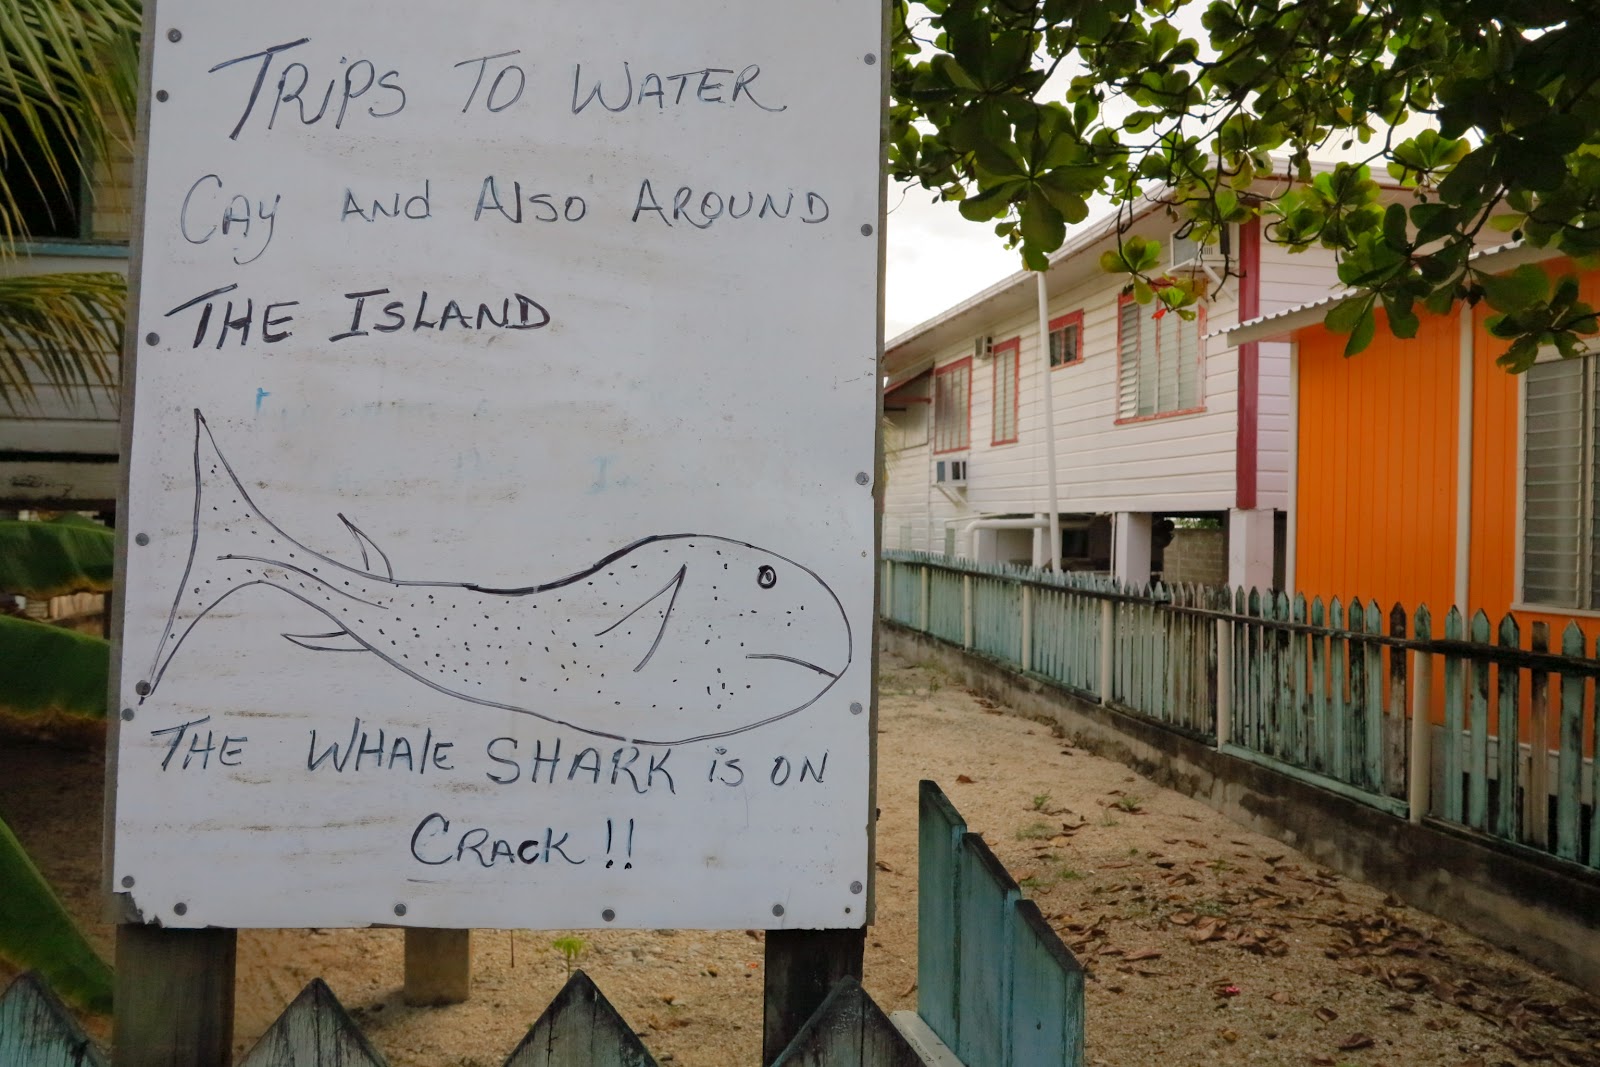 TRiPS TO WATER
CAY AND AlSO AROUND
THE ISLAND
THE WHAlE SHARK iS ON
CRACK !!